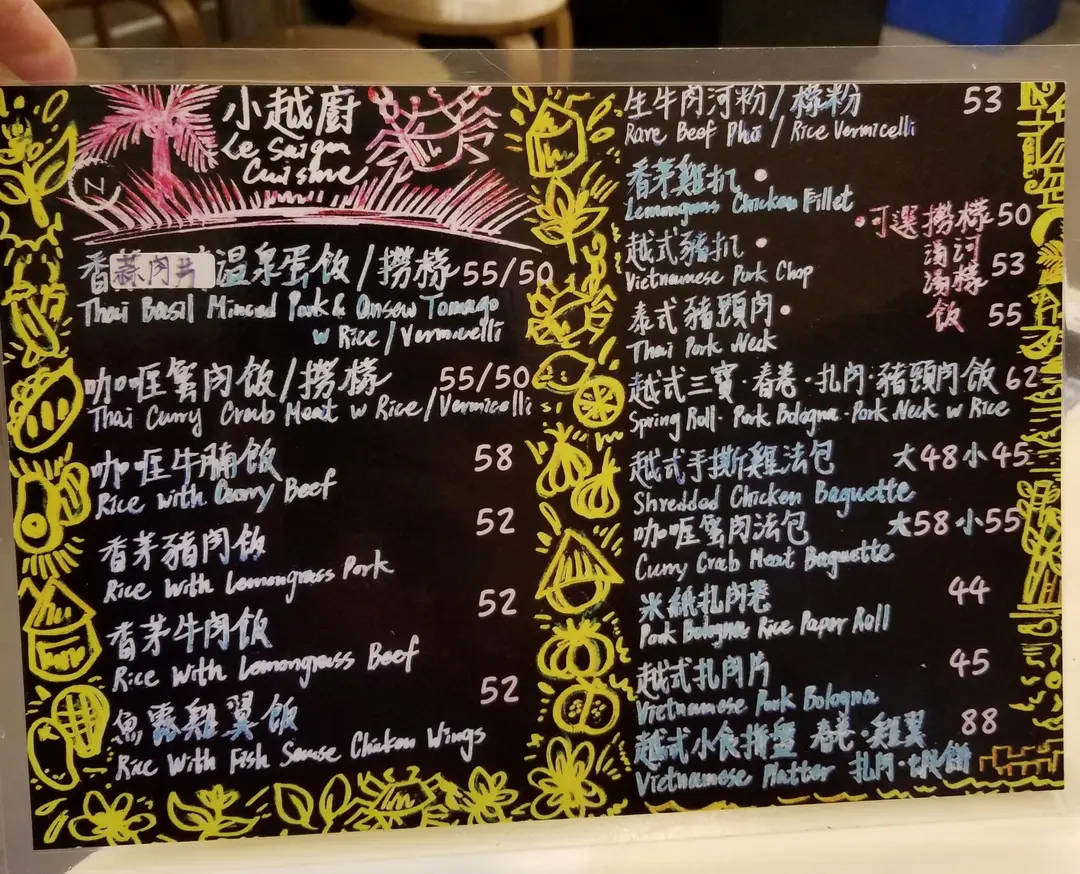 小越廚
Le Saigon
Cuisine
香蒜肉片溫泉蛋飯/撈檬 55/50
Thai Basil Minced Pork & Onsen Tamago
w Rice/Vermicelli
咖喱蟹肉飯/撈檬 55/50
Thai Curry Crab Meat w Rice/Vermicelli
咖喱牛腩飯 58
Rice With Curry Beef
香茅豬肉飯 52
Rice With Lemongrass Pork
香茅牛肉飯 52
Rice With Lemongrass Beef
魚露雞翼飯 52
Rice With Fish Sauce Chicken Wings
生牛肉河粉/檬粉 53
Rare Beef Pho / Rice Vermicelli
香茅雞扒•
Lemongrass Chicken Fillet
越式豬扒•
Vietnamese Pork Chop
泰式豬頸肉•
Thai Pork Neck
•可選撈檬 50
湯河
湯檬 53
飯 55
越式三寶·春卷·扎肉·豬頸肉飯 62
Spring Roll·Pork Bologna·Pork Neck w Rice
越式手撕雞法包 大48小45
Shredded Chicken Baguette
咖喱蟹肉法包 大58小55
Curry Crab Meat Baguette
米紙扎肉卷 44
Pork Bologna Rice Paper Roll
越式扎肉片 45
Vietnamese Pork Bologna
越式小食拼盤 春卷·雞翼 88
Vietnamese Platter 扎肉·蝦餅